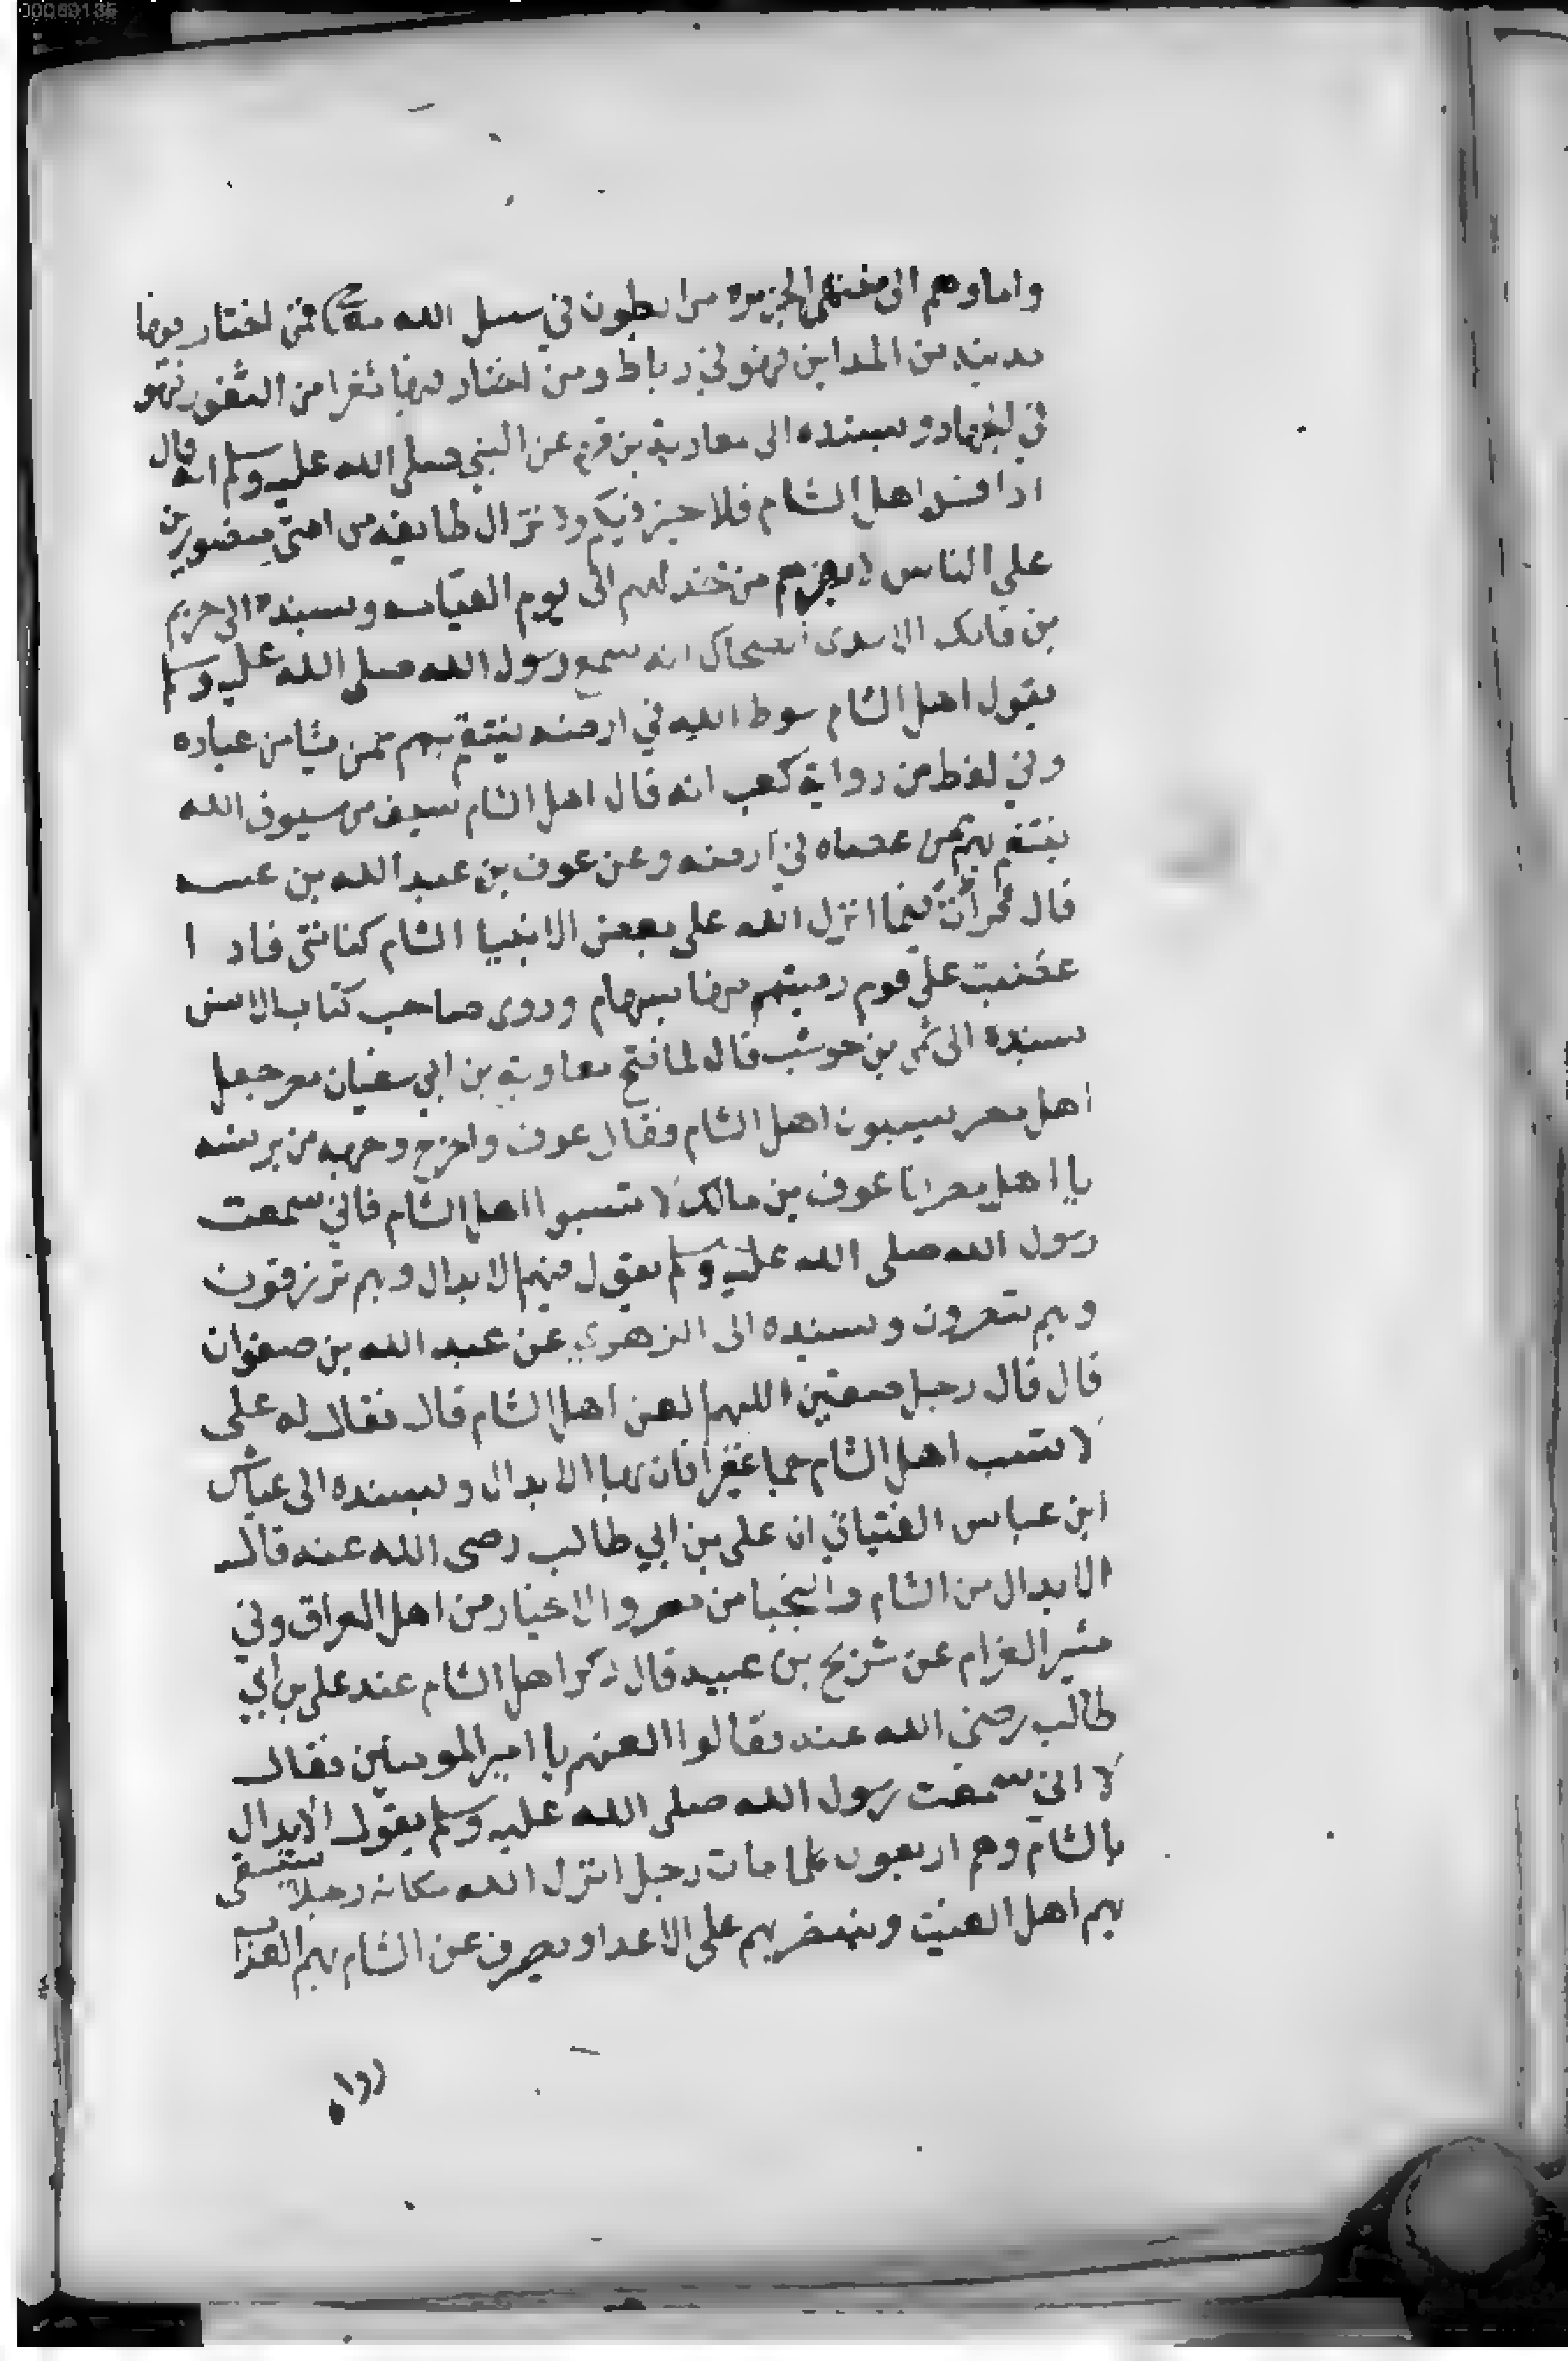 00069135
واماوهم الى منتهى الجزيرة مرابطون في سبيل الله فمن اختار فيها
مدينة من المداين فهو في رباط ومن اختار فيها ثغرا من الثغور فهو
في الجهاد وبسنده الى معاوية بن قرة عن النبي صلى الله عليه وسلم انه قال
اذا فسد اهل الشام فلا خير فيكم ولا تزال طايفة من امتي منصورين
على الناس لا يضرهم من خذلهم الى يوم القيامه وبسنده الى خريم
بن فاتك الاسدي الصحابي انه سمع رسول الله صلى الله عليه وسلم
يقول اهل الشام سوط الله في ارضه ينتقم بهم ممن يشا من عباده
وفي لفظ من رواية كعب انه قال اهل الشام سيف من سيوف الله
ينتقم بهم ممن عصاه في ارضه وعن عون بن عبد الله بن عتبه
قال قرأت فيما انزل الله على بعض الانبيا الشام كنانتي فاذا
غضبت على قوم رميتهم منها بسهام وروى صاحب كتاب الانس
بسنده الى شهر بن حوشب قال لما فتح معاوية بن ابي سفيان مصر جعل
اهل مصر يسبون اهل الشام فقال عوف واخرج وجهه من برنسه
يا اهل مصر انا عوف بن مالك لا تسبوا اهل الشام فاني سمعت
رسول الله صلى الله عليه وسلم يقول فيهم الابدال وبهم ترزقون
وبهم تنصرون وبسنده الى الزهري عن عبد الله بن صفوان
قال قال رجل صفين اللهم العن اهل الشام قال فقال له على
لا تسب اهل الشام جما غفيرا فان بها الابدال وبسنده الى عياش
ابن عباس القتباني ان على بن ابي طالب رضى الله عنه قال
الابدال من الشام والنجبا من مصر والاخيار من اهل العراق وفي
مثير الغرام عن شريح بن عبيد قال ذكر اهل الشام عند على بن ابي
طالب رضي الله عنه فقالوا العنهم يا امير المومنين فقال
لا اني سمعت رسول الله صلى الله عليه وسلم يقول الابدال
بالشام وهم اربعون كلما مات رجل انزل الله مكانه رجلا يستسقى
بهم اهل الغيث وينتصر بهم على الاعدا ويصرف عن الشام بهم العذاب
رواه